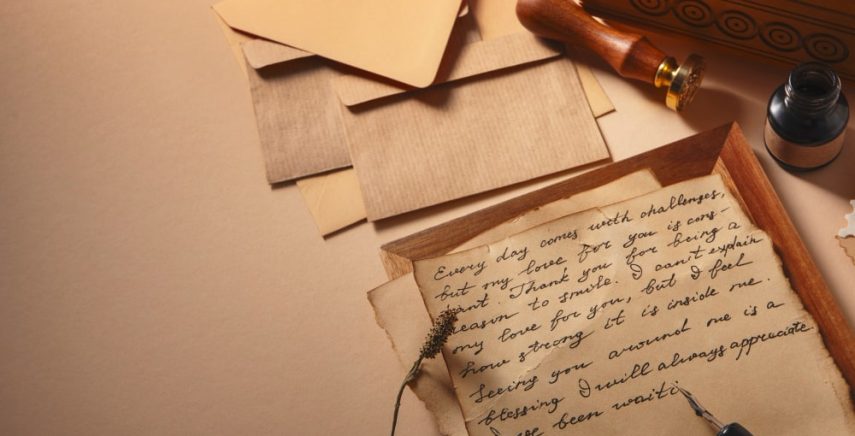 Every day comes with challenges,
but my love for you is cons-
tant. Thank you for being a
reason to smile. I can't explain
my love for you, but I feel
how strong it is inside me.
Seeing you around me is a
blessing I will always appreciate.
been waiti